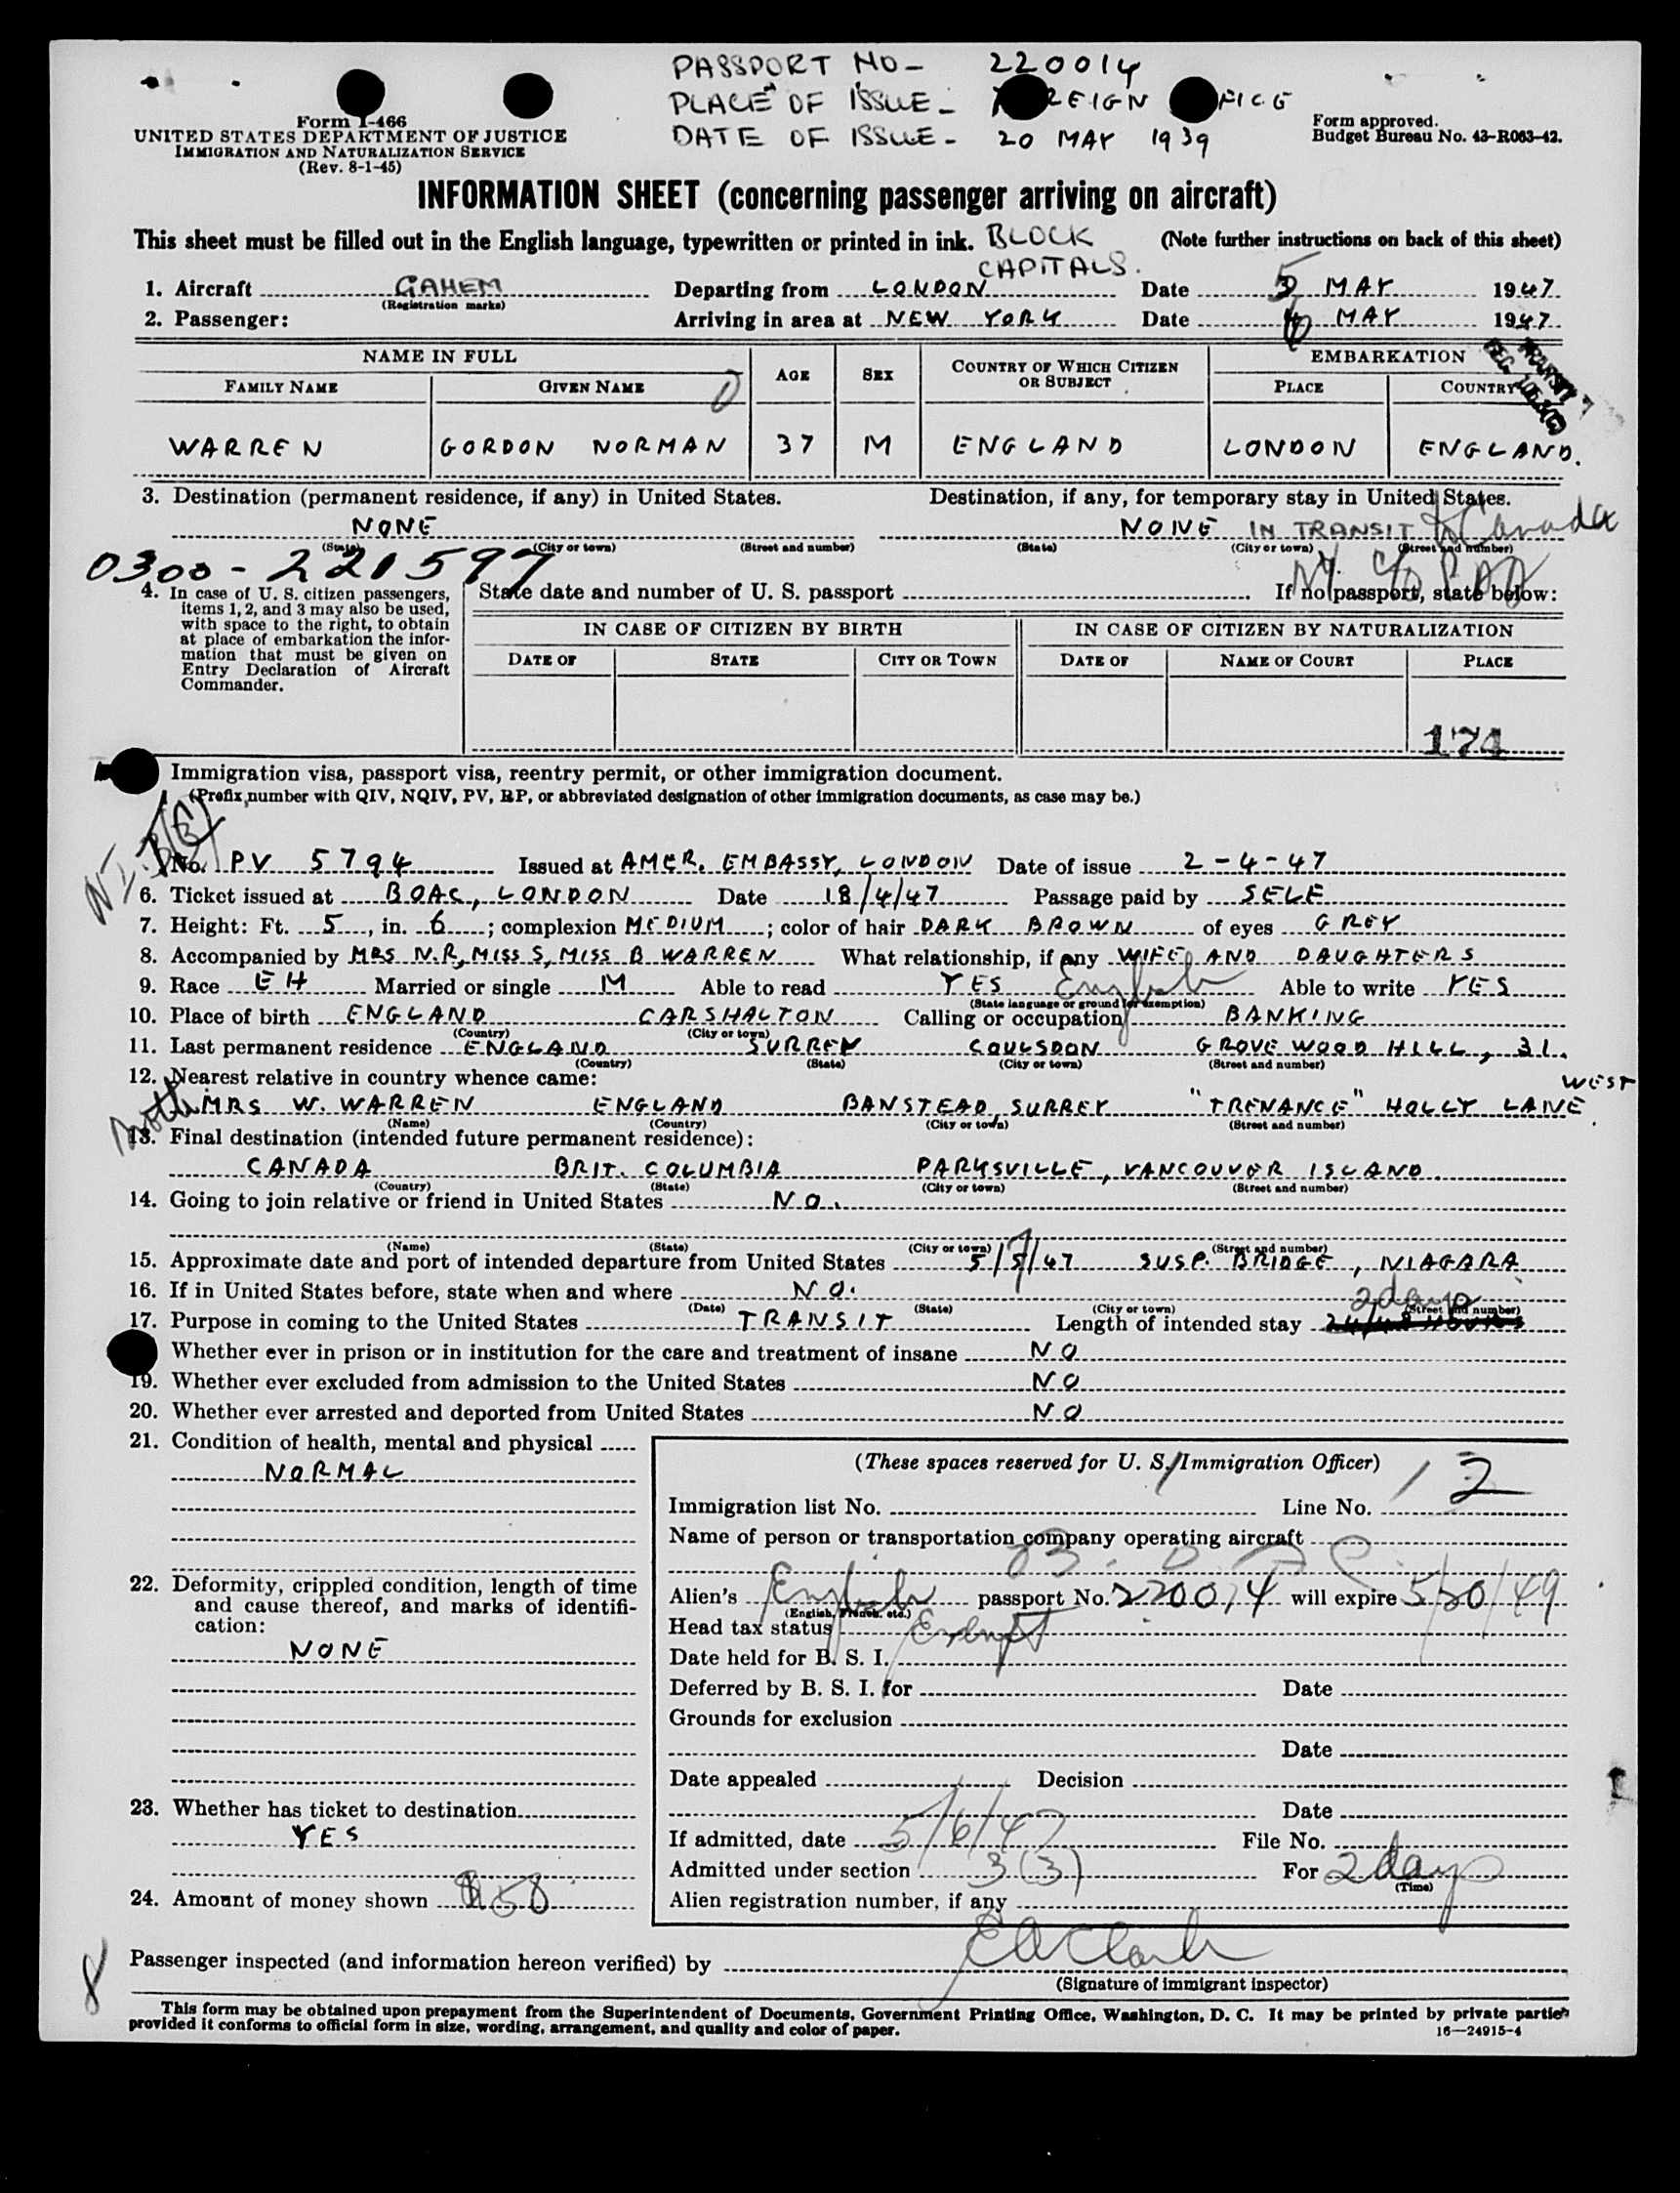 PASSPORT NO - 220014
PLACE OF ISSUE - REIGN FICE
DATE OF ISSUE - 20 MAY 1939
Form I-466
UNITED STATES DEPARTMENT OF JUSTICE
IMMIGRATION AND NATURALIZATION SERVICE
(Rev. 8-1-45)
Form approved.
Budget Bureau No. 43-R063-42.
INFORMATION SHEET (concerning passenger arriving on aircraft)
This sheet must be filled out in the English language, typewritten or printed in ink. BLOCK CAPITALS. (Note further instructions on back of this sheet)
1. Aircraft GAHEM Departing from LONDON Date 5 MAY 1947
(Registration marks)
2. Passenger: Arriving in area at NEW YORK Date MAY 1947
NAME IN FULL AGE SEX COUNTRY OF WHICH CITIZEN OR SUBJECT EMBARKATION
FAMILY NAME GIVEN NAME PLACE COUNTRY
TRANSIT
WARREN GORDON NORMAN 37 M ENGLAND LONDON ENGLAND.
3. Destination (permanent residence, if any) in United States. Destination, if any, for temporary stay in United States.
NONE NONE IN TRANSIT to Canada
(State) (City or town) (Street and number) (State) (City or town) (Street and number)
0300-221597 NY. c/o
4. In case of U. S. citizen passengers, items 1, 2, and 3 may also be used, with space to the right, to obtain at place of embarkation the information that must be given on Entry Declaration of Aircraft Commander.
State date and number of U. S. passport If no passport, state below:
IN CASE OF CITIZEN BY BIRTH IN CASE OF CITIZEN BY NATURALIZATION
DATE OF STATE CITY OR TOWN DATE OF NAME OF COURT PLACE
174
Immigration visa, passport visa, reentry permit, or other immigration document.
(Prefix number with QIV, NQIV, PV, RP, or abbreviated designation of other immigration documents, as case may be.)
No. PV 5794 Issued at AMER. EMBASSY, LONDON Date of issue 2-4-47
6. Ticket issued at BOAC, LONDON Date 18/4/47 Passage paid by SELF
7. Height: Ft. 5, in. 6; complexion MEDIUM; color of hair DARK BROWN of eyes GREY
8. Accompanied by MRS N.R, MISS S, MISS B WARREN What relationship, if any WIFE AND DAUGHTERS
9. Race EH Married or single M Able to read YES English Able to write YES
(State language or ground for exemption)
10. Place of birth ENGLAND CARSHALTON Calling or occupation BANKING
(Country) (City or town)
11. Last permanent residence ENGLAND SURREY COULSDON GROVE WOOD HILL, 31.
(Country) (State) (City or town) (Street and number)
12. Nearest relative in country whence came:
WEST
Mother MRS W. WARREN ENGLAND BANSTEAD, SURREY "TRENANCE" HOLLY LANE.
(Name) (Country) (City or town) (Street and number)
13. Final destination (intended future permanent residence):
CANADA BRIT. COLUMBIA PARKSVILLE, VANCOUVER ISLAND.
(Country) (State) (City or town) (Street and number)
14. Going to join relative or friend in United States NO.
(Name) (State) (City or town) (Street and number)
15. Approximate date and port of intended departure from United States 5/7/47 SUSP. BRIDGE, NIAGARA
16. If in United States before, state when and where NO.
(Date) (State) (City or town) (Street and number)
17. Purpose in coming to the United States TRANSIT Length of intended stay 2 days
Whether ever in prison or in institution for the care and treatment of insane NO
19. Whether ever excluded from admission to the United States NO
20. Whether ever arrested and deported from United States NO
21. Condition of health, mental and physical
NORMAL
22. Deformity, crippled condition, length of time and cause thereof, and marks of identification:
NONE
23. Whether has ticket to destination
YES
24. Amount of money shown $50
(These spaces reserved for U. S. Immigration Officer)
Immigration list No. Line No. 2
Name of person or transportation company operating aircraft
B.O.A.C.
Alien's English passport No. 220014 will expire 5/20/49
(English, French, etc.)
Head tax status Exempt
Date held for B. S. I.
Deferred by B. S. I. for Date
Grounds for exclusion
Date
Date appealed Decision
Date
If admitted, date 5/6/47 File No.
Admitted under section 3(3) For 2 days
(Time)
Alien registration number, if any
8
Passenger inspected (and information hereon verified) by E A Clark
(Signature of immigrant inspector)
This form may be obtained upon prepayment from the Superintendent of Documents, Government Printing Office, Washington, D. C. It may be printed by private parties
provided it conforms to official form in size, wording, arrangement, and quality and color of paper.
16—24915-4